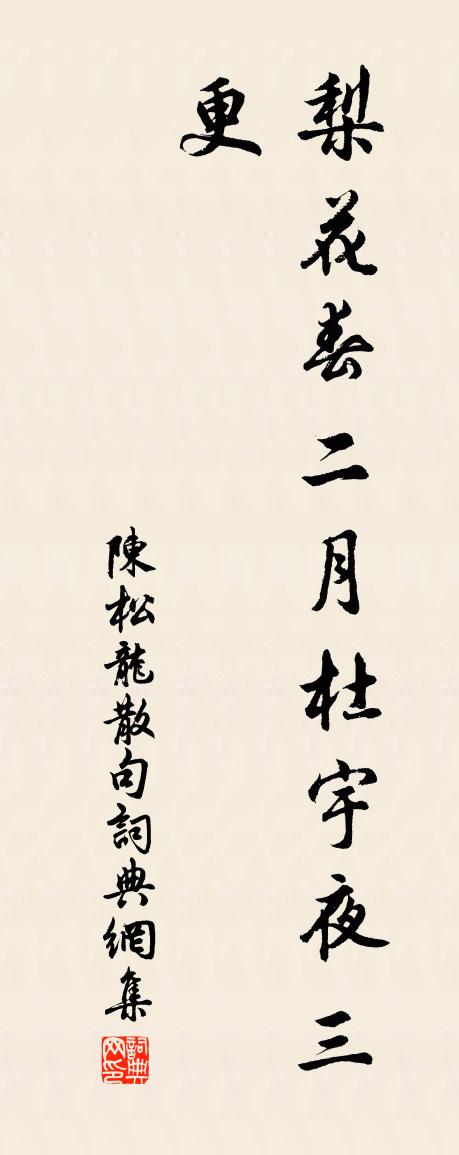 梨花春二月杜宇夜三
更
陳松龍散句詞典網集
詞典网印